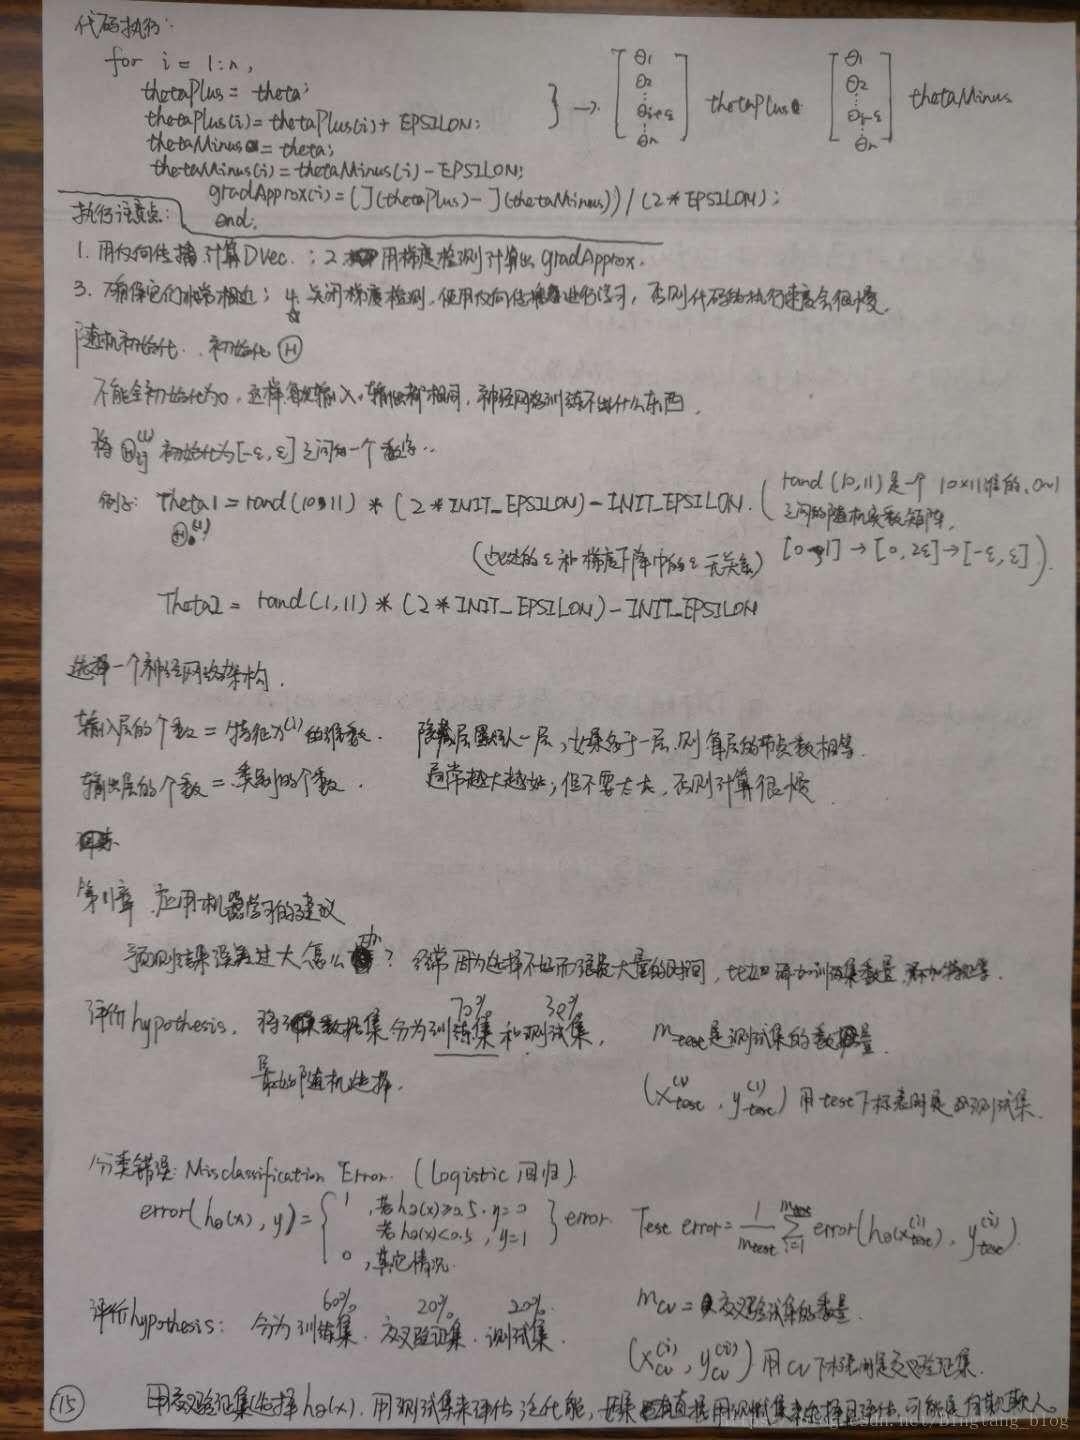 代码执行:
for i = 1:n,
thetaPlus = theta;
thetaPlus(i) = thetaPlus(i) + EPSILON;
thetaMinus = theta;
thetaMinus(i) = thetaMinus(i) - EPSILON;
gradApprox(i) = (J(thetaPlus) - J(thetaMinus)) / (2 * EPSILON);
end;
} → [θ1 θ2 ⋮ θi+ε ⋮ θn] thetaPlus [θ1 θ2 ⋮ θi-ε ⋮ θn] thetaMinus
执行注意点:
1. 用反向传播计算Dvec. ; 2. 用梯度检测计算出gradApprox.
3. 确保它们非常相近; 4. 关闭梯度检测, 使用反向传播进行学习, 否则代码的执行速度会很慢.
随机初始化. 初始化 Θ
不能全初始化为0, 这样每次输入, 输出都相同, 神经网络训练不出什么东西.
将 Θij(l) 初始化为[-ε, ε]之间的一个数字.
例子: Theta1 = rand(10,11) * (2 * INIT_EPSILON) - INIT_EPSILON.
Θ(1)
(rand(10,11)是一个 10×11维的, 0~1
之间的随机实数矩阵,
[0~1] → [0, 2ε] → [-ε, ε].)
(此处的ε和梯度下降中的ε无关系)
Theta2 = rand(1,11) * (2 * INIT_EPSILON) - INIT_EPSILON
选择一个神经网络架构.
输入层的个数 = 特征x(i)的维数. 隐藏层默认一层, 如果多于一层, 则每层的节点数相等.
输出层的个数 = 类别的个数. 通常越大越好, 但不要太大, 否则计算很慢
第11章 应用机器学习的建议
预测结果误差过大怎么办? 经常因为选择不好而浪费大量的时间, 比如添加训练集数量, 添加特征等.
70% 30%
评价hypothesis. 将数据集分为训练集和测试集, mtest是测试集的数据量.
最好随机选择.
(xtest(i), ytest(i)) 用test下标表明是测试集.
分类错误: Misclassification Error. (Logistic 回归).
error(hθ(x), y) = { 1, 若hθ(x)≥0.5, y=0
若hθ(x)<0.5, y=1
0, 其它情况.
} error. Test error = 1/mtest Σ i=1 mtest error(hθ(xtest(i)), ytest(i)).
60% 20% 20%
评价hypothesis: 分为训练集. 交叉验证集. 测试集. mcv = 交叉验证集的数量.
(xcv(i), ycv(i)) 用cv下标表明是交叉验证集.
15
用交叉验证集选择hθ(x). 用测试集来评估泛化能,